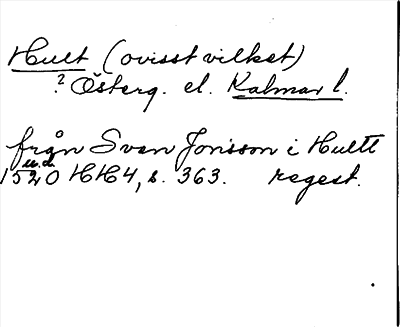 Hult (ovisst vilket)
? Österg. el. Kalmar l.
från Sven Jonsson i Hultt
u.d.
1520 HH4, s. 363. regest.